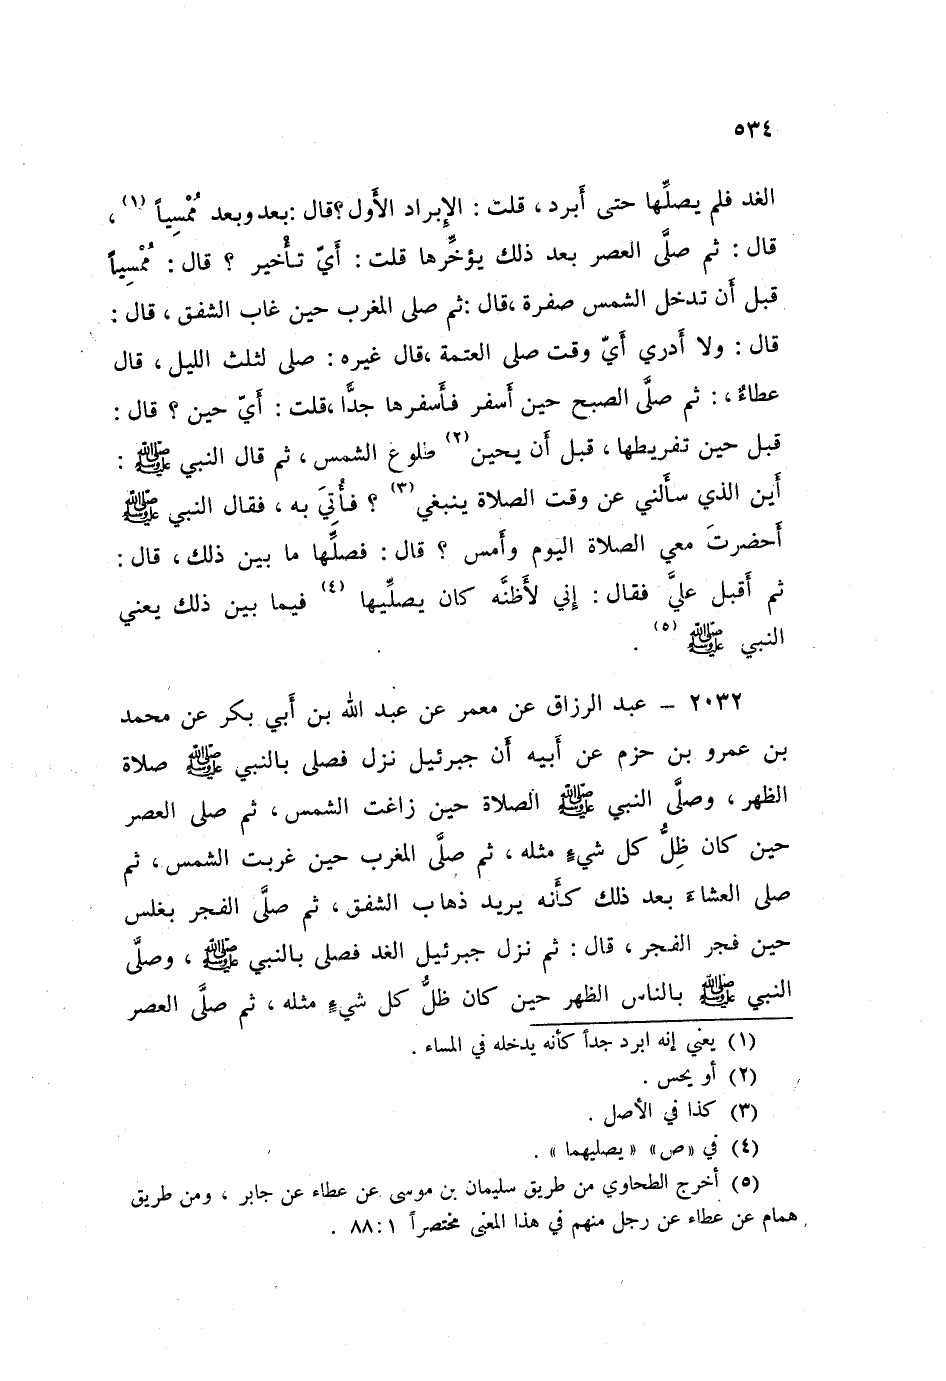 ٥٣٤
الغد فلم يصلِّها حتى أبرد ، قلت : الإبراد الأول ؟قال :بعد وبعد مُمْسِياً (١) ،
قال : ثم صلَّى العصر بعد ذلك يؤخِّرها قلت : أيّ تأْخير ؟ قال : مُمْسِياً
قبل أن تدخل الشمس صفرة ،قال :ثم صلى المغرب حين غاب الشفق ، قال :
قال : ولا أدري أيّ وقت صلى العتمة ،قال غيره : صلى لثلث الليل ، قال
عطاءٌ ، : ثم صلَّى الصبح حين أسفر فأسفرها جدًّا ،قلت : أيّ حين ؟ قال :
قبل حين تفريطها ، قبل أن يحين (٢) طلوع الشمس ، ثم قال النبي ﷺ :
أين الذي سألني عن وقت الصلاة ينبغي (٣) ؟ فأُتِيَ به ، فقال النبي ﷺ
أحضرتَ معي الصلاة اليوم وأمس ؟ قال : فصلِّها ما بين ذلك ، قال :
ثم أقبل عليَّ فقال : إني لأظنَّه كان يصلِّيها (٤) فيما بين ذلك يعني
النبي ﷺ (٥) .
٢٠٣٢ – عبد الرزاق عن معمر عن عبد الله بن أبي بكر عن محمد
بن عمرو بن حزم عن أبيه أن جبرئيل نزل فصلى بالنبي ﷺ صلاة
الظهر ، وصلَّى النبي ﷺ الصلاة حين زاغت الشمس ، ثم صلى العصر
حين كان ظِلُّ كل شيءٍ مثله ، ثم صلَّى المغرب حين غربت الشمس ، ثم
صلى العشاءَ بعد ذلك كأنه يريد ذهاب الشفق ، ثم صلَّى الفجر بغلس
حين فجر الفجر ، قال : ثم نزل جبرئيل الغد فصلى بالنبي ﷺ ، وصلَّى
النبي ﷺ بالناس الظهر حين كان ظلُّ كل شيءٍ مثله ، ثم صلَّى العصر
(١) يعني إنه ابرد جداً كأنه يدخله في المساء .
(٢) أو يحس .
(٣) كذا في الأصل .
(٤) في «ص» « يصليهما » .
(٥) أخرج الطحاوي من طريق سليمان بن موسى عن عطاء عن جابر ، ومن طريق
همام عن عطاء عن رجل منهم في هذا المعنى مختصراً ١ : ٨٨ .